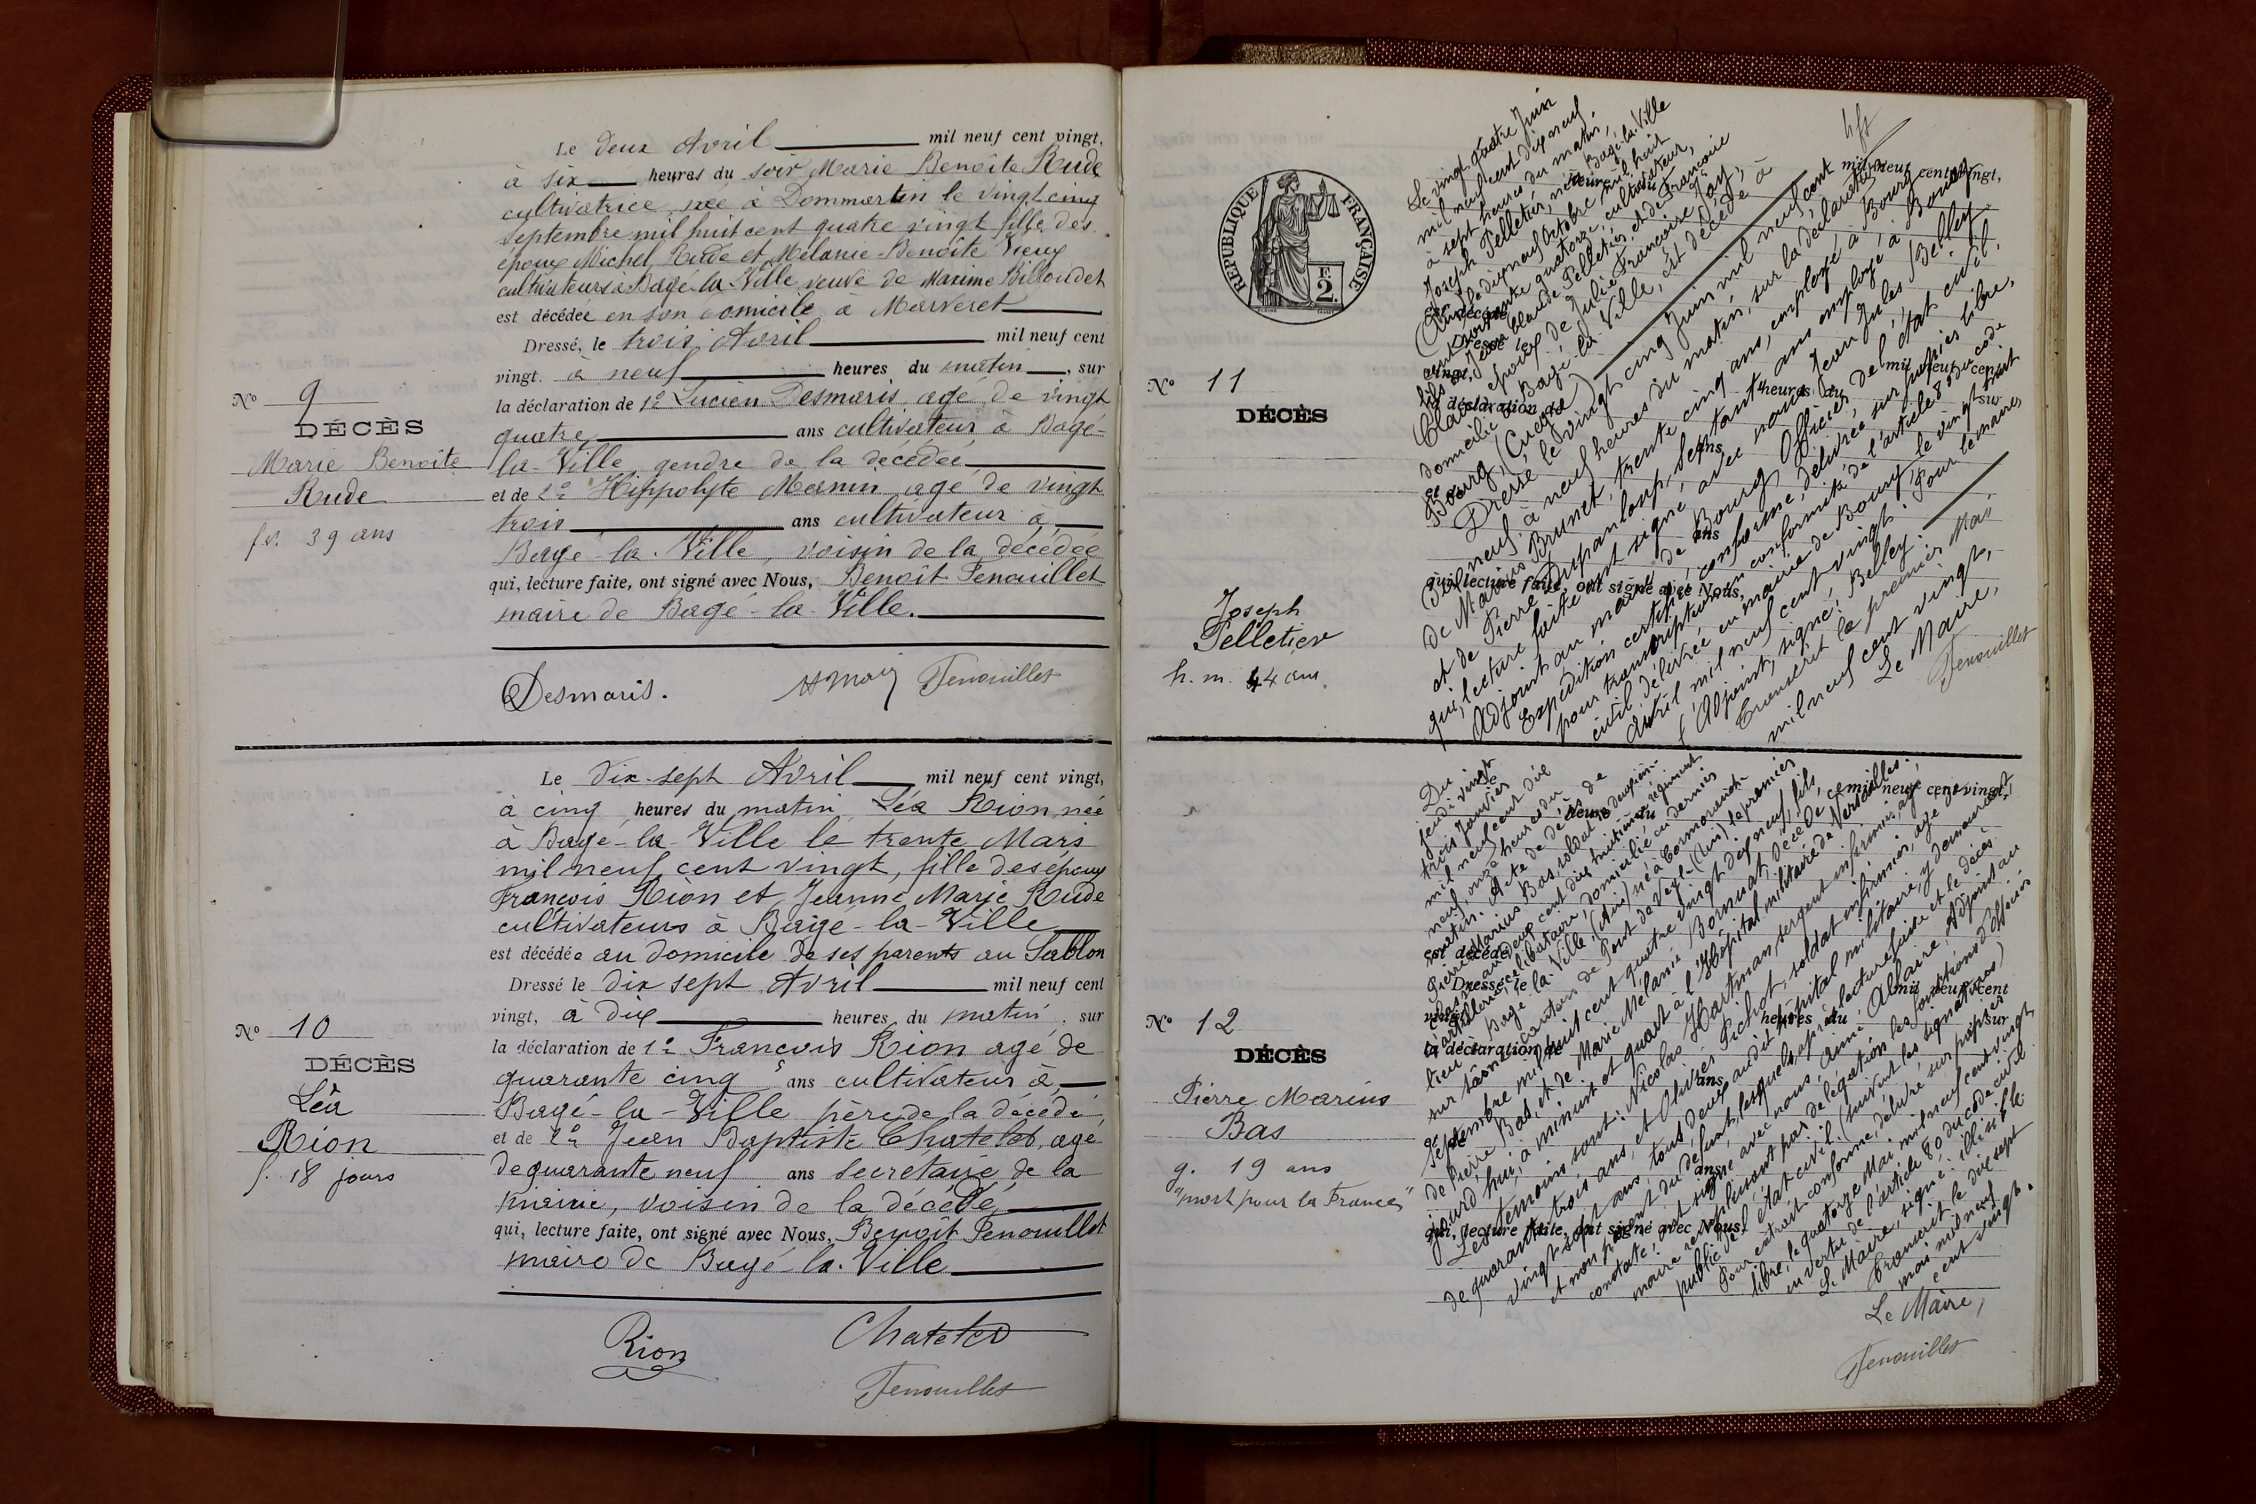 Le deux Avril mil neuf cent vingt,
à six heures du soir Marie Benoîte Rude
cultivatrice née à Dommartin le vingt cinq
septembre mil huit cent quatre vingt fille des
époux Michel Rude et Mélanie Benoîte Vieux
cultivateurs à Bagé-la-Ville veuve de Maxime Billoudet
est décédée en son domicile à Marveret
Dressé, le trois Avril mil neuf cent
vingt. à neuf heures du matin, sur
la déclaration de 1º Lucien Desmaris agé de vingt
quatre ans cultivateur à Bagé-
la-Ville gendre de la décédée
et de 2º Hippolyte Morin agé de vingt
trois ans cultivateur à
Bagé-la-Ville, voisin de la décédée
qui, lecture faite, ont signé avec Nous, Benoît Fenouillet
maire de Bagé-la-Ville.
Nº 9
DÉCÈS
Marie Benoîte
Rude
fv. 39 ans
Desmaris. Fenouillet
Le dix-sept Avril mil neuf cent vingt,
à cinq heures du matin Léa Rion née
à Bagé-la-Ville le trente Mars
mil neuf cent vingt, fille des époux
François Rion et Jeanne Marie Rude
cultivateurs à Bagé-la-Ville
est décédée au domicile de ses parents au Sablon
Dressé le dix sept Avril mil neuf cent
vingt, à dix heures du matin, sur
la déclaration de 1º François Rion agé de
quarante cinq ans cultivateur à
Bagé-la-Ville père de la décédé
et de 2º Jean Baptiste Chatelet, agé
de quarante neuf ans secretaire de la
mairie, voisin de la décédé
qui, lecture faite, ont signé avec Nous, Benoît Fenouillet
maire de Bagé-la-Ville
Nº 10
DÉCÈS
Léa
Rion
f. 18 jours
Rion Chatelet
Fenouillet
RÉPUBLIQUE FRANÇAISE
2
F.
Nº 11
DÉCÈS
Joseph
Pelletier
h. m. 44 ans
Le vingt quatre Juin
mil neuf cent dix neuf
à sept heures du matin,
Joseph Pelletier, né à Bagé-la-Ville
(Ain) le dix neuf Octobre mil huit
cent soixante quatorze, cultivateur,
fils de Jean Claude Pelletier et de Françoise
époux de Julie Françoise Jay,
domicilié à Bagé la Ville, est décédé à
Bourg,
Dressé le vingt cinq Juin mil neuf cent
dix neuf, à neuf heures du matin, sur la déclaration
de Marius Brunet, trente cinq ans, employé à Bourg
et de Pierre Dupanloup, septante ans employé à Bourg
qui, lecture faite ont signé avec nous Jean Jules Belley,
Adjoint au maire de Bourg, Officier de l'état civil.
Expédition certifiée conforme, délivrée sur papier libre,
pour transcription en conformité de l'article 80 du code
civil, délivrée en mairie de Bourg le vingt huit
Avril mil neuf cent vingt. Pour le maire,
l'Adjoint, signé: Belley.
Transcrit le premier Mai
mil neuf cent vingt,
Le Maire,
Fenouillet
mil neuf cent vingt,
qui, lecture faite, ont signé avec Nous,
Nº 12
DÉCÈS
Pierre Marius
Bas
g. 19 ans
"mort pour la France"
Du
jeudi vingt
trois Janvier
mil neuf cent dix
neuf, onze heures du
matin. Acte de décès de
Pierre Marius Bas, soldat de deuxième
classe au deux cent dix huitième régiment
d'artillerie, célibataire, domicilié en dernier
lieu à Bagé-la-Ville (Ain) né à Cormoranche
sur Saône, canton de Pont de Veyle (Ain) le premier
Septembre mil huit cent quatre vingt dix neuf, fils
de Pierre Bas, et de Marie Mélanie Bornuat. Décédé ce
jourd'hui, à minuit et quart à l'Hôpital militaire de Versailles.
Les témoins sont: Nicolas Hartman, sergent infirmier, agé
de quarante trois ans, et Olivier Pichot, soldat infirmier, agé de
vingt sept ans, tous deux audit hôpital militaire, y demeurant,
et non parent du défunt, lesquels après lecture faite et le décès
constaté, ont signé avec nous, Aimé Ablaire Adjoint au
maire remplissant par délégation les fonctions d'officier
public de l'état civil. (suivent les signatures)
Pour extrait conforme, délivré sur papier
libre, le quatorze Mai mil neuf cent vingt
en vertu de l'article 80 du code civil
Le Maire, signé: illisible.
Transcrit le dix sept
mai mil neuf
cent vingt.
Le Maire,
Fenouillet
mil neuf cent vingt,
qui, lecture faite, ont signé avec Nous,